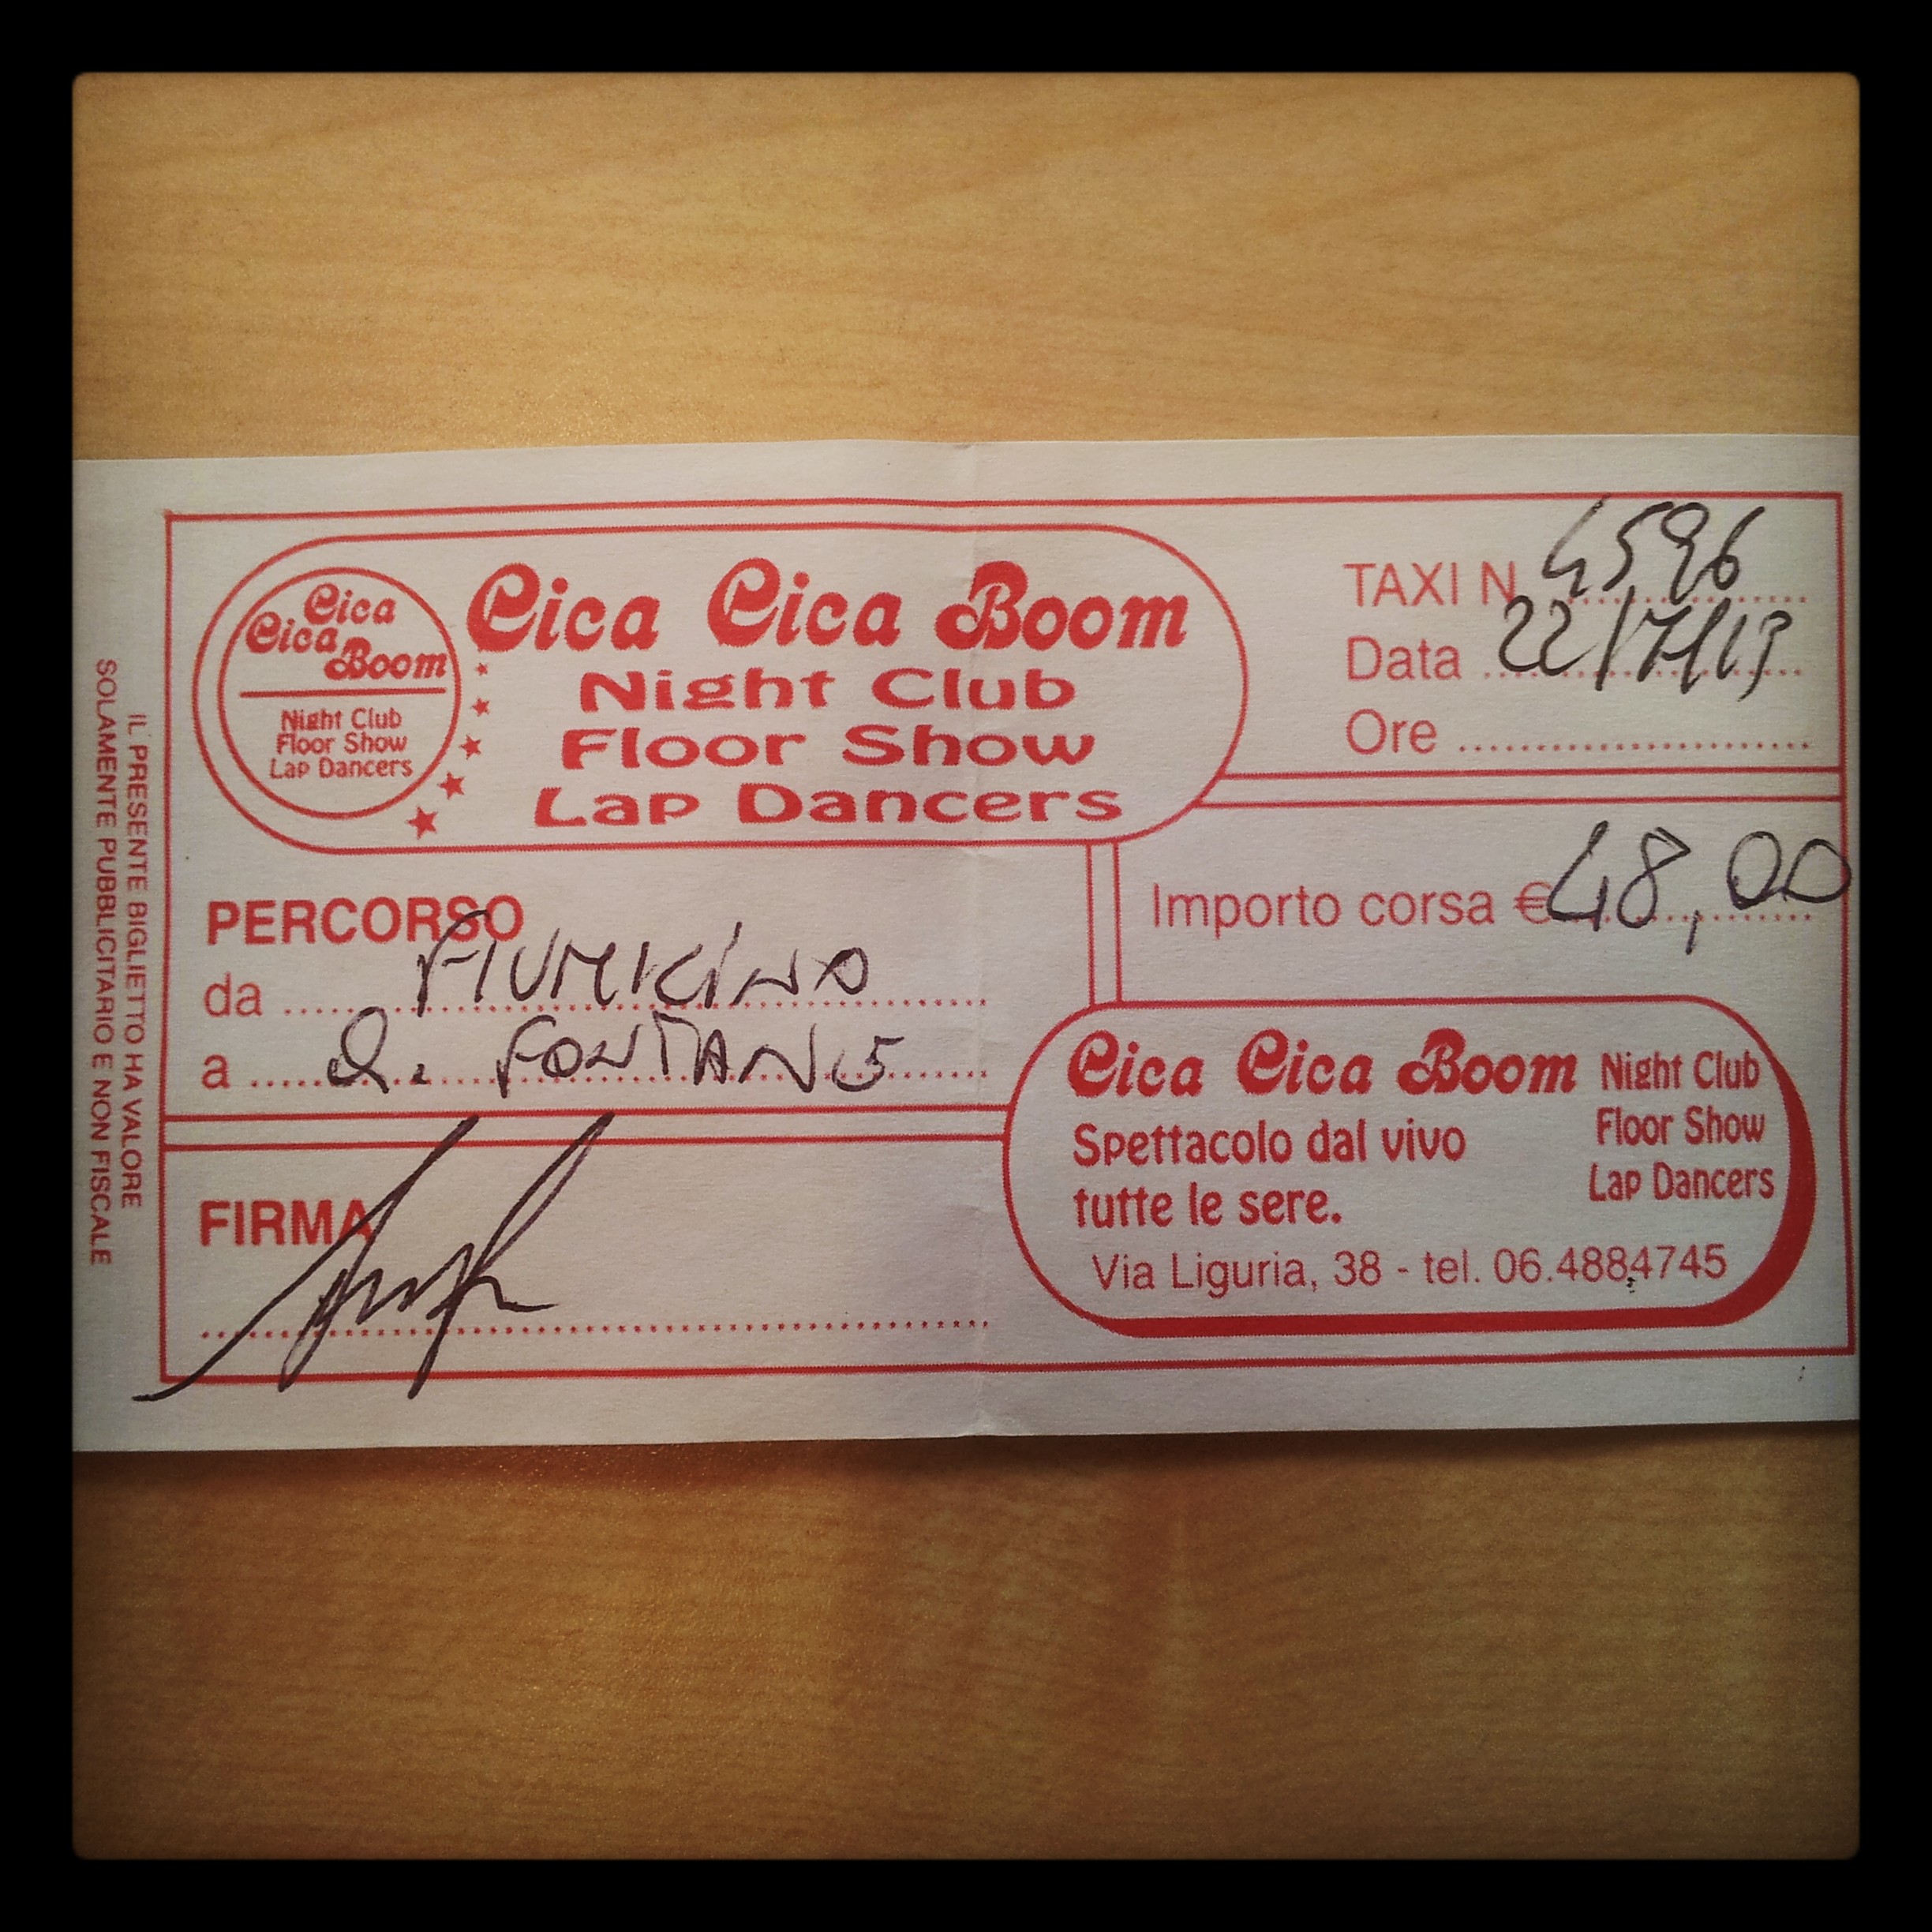 Cica
Cica
Boom
Night Club
Floor Show
Lap Dancers
Cica Cica Boom
Night Club
Floor Show
Lap Dancers
TAXI N. 4596
Data 22/7/13
Ore
PERCORSO
da FIUMICINO
a Q. FONTANE
Importo corsa € 48,00
FIRMA
Cica Cica Boom
Spettacolo dal vivo
tutte le sere.
Night Club
Floor Show
Lap Dancers
Via Liguria, 38 - tel. 06.4884745
IL PRESENTE BIGLIETTO HA VALORE
SOLAMENTE PUBBLICITARIO E NON FISCALE